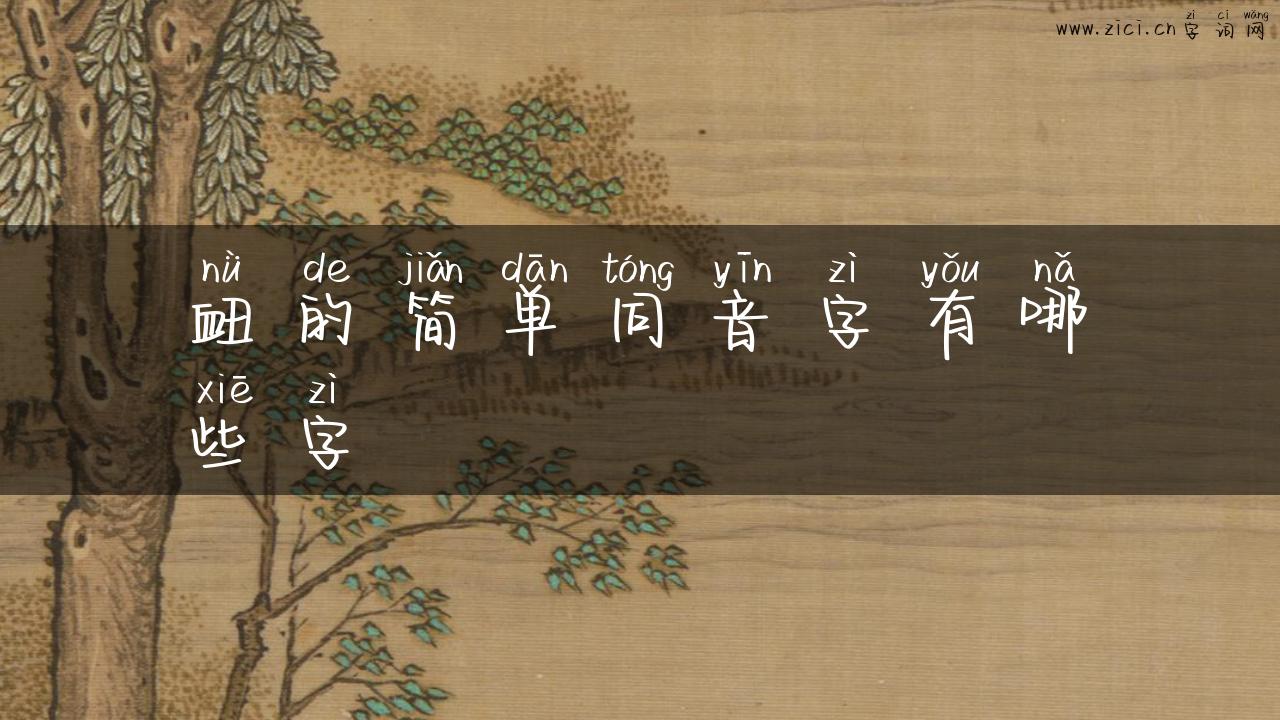 zì cí wǎng
www.zici.cn 字词网
nǜ de jiǎn dān tóng yīn zì yǒu nǎ
衄的简单同音字有哪
xiē zì
些字